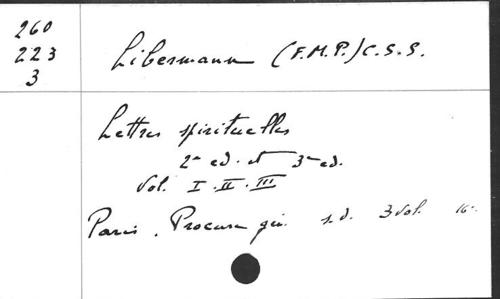 260
223
3
Libermann (F.M.P.) C.S.S.
Lettres spirituelles
2e ed. et 3e ed.
Vol. I. II. III
Paris. Procure gén. s.d. 3 vol. 16-